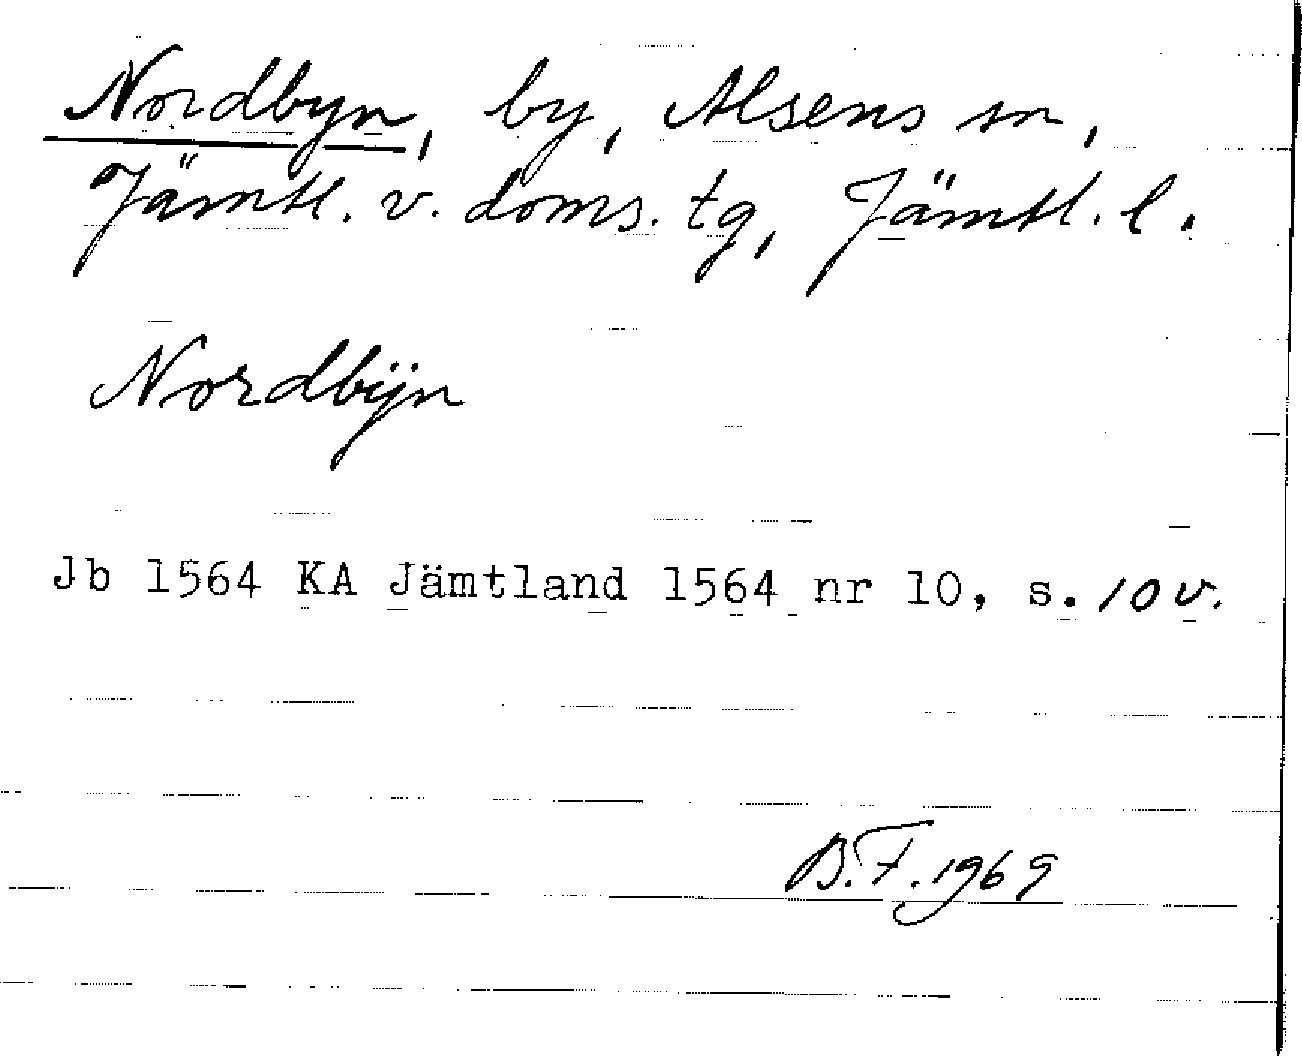 Nordbyn, by, Alsens sn,
Jämtl. v. doms. tg, Jämtl. l.
Nordbÿn
Jb 1564 KA Jämtland 1564 nr 10, s. 10 v.
B.F. 1969